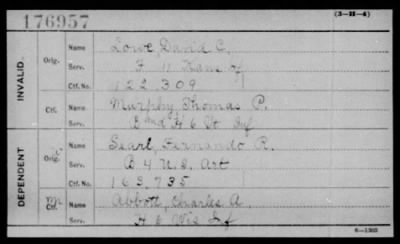 176957
(3-H-4)
INVALID.
Orig. Name Lowe, David C.
Serv. F 11 Kans Inf
Ctf. No. 122 309
Ctf. Name Murphy Thomas P.
Serv. E and H 6 Vt Inf
DEPENDENT
Orig. Name Searl, Fernando R.
Serv. B. 4 U.S. Art
Ctf. No. 163,735
Ctf. Name Abbott, Charles A.
Serv. H 6 Wis Inf